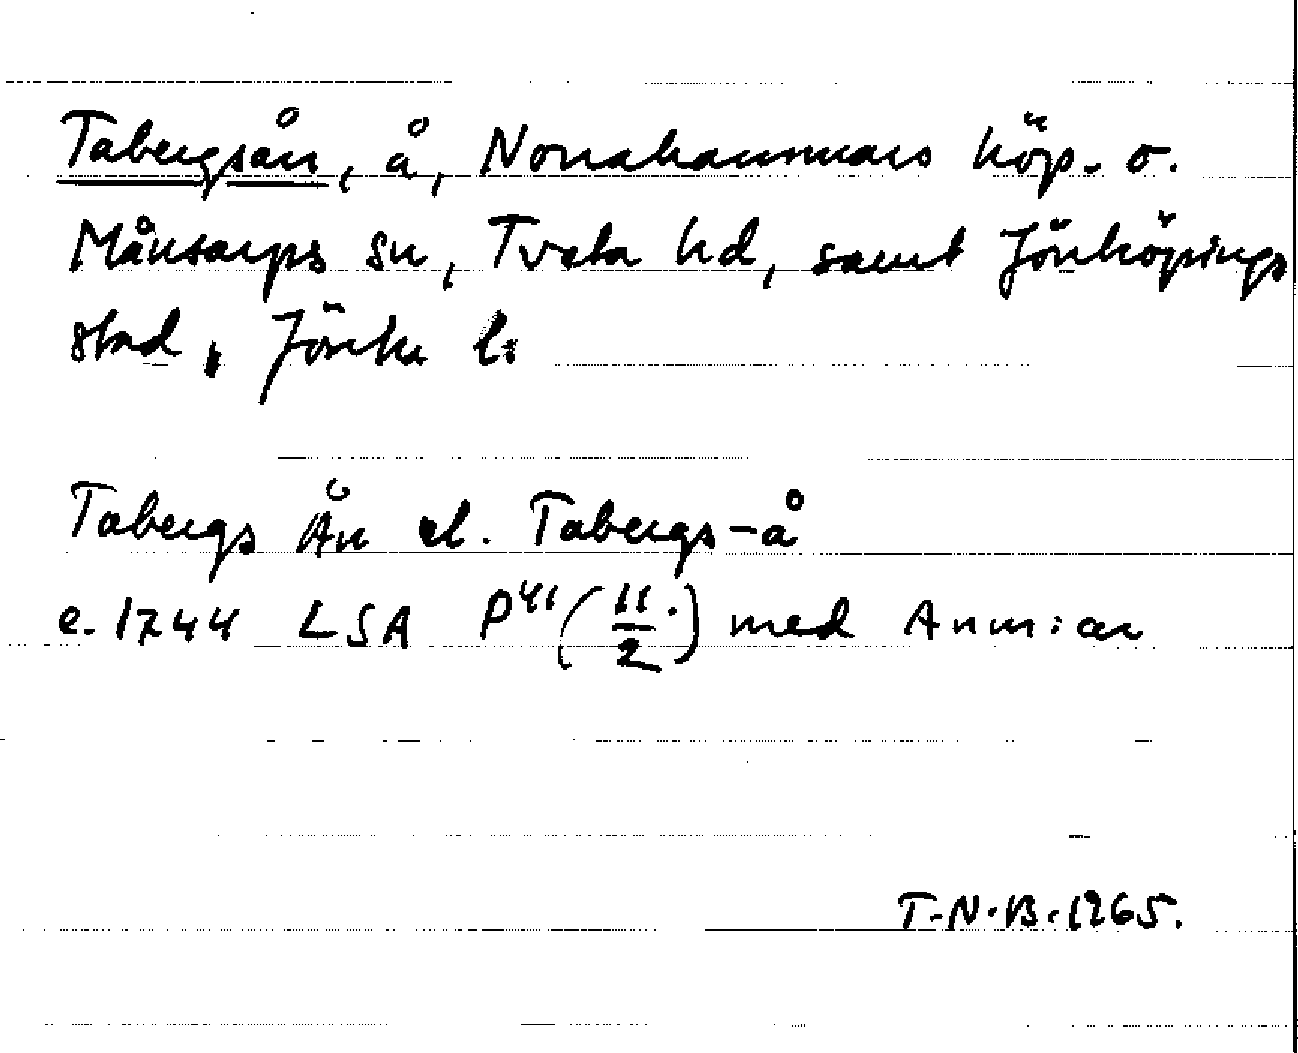 Tabergsån, å, Norrahammars köp. o.
Månsarps sn, Tveta hd, samt Jönköpings
stad, Jönk. l:
Tabergs Ån el. Tabergs-å
e. 1744 LSA P41 (11/2.) med Anm:ar
T.N.B. 1965.